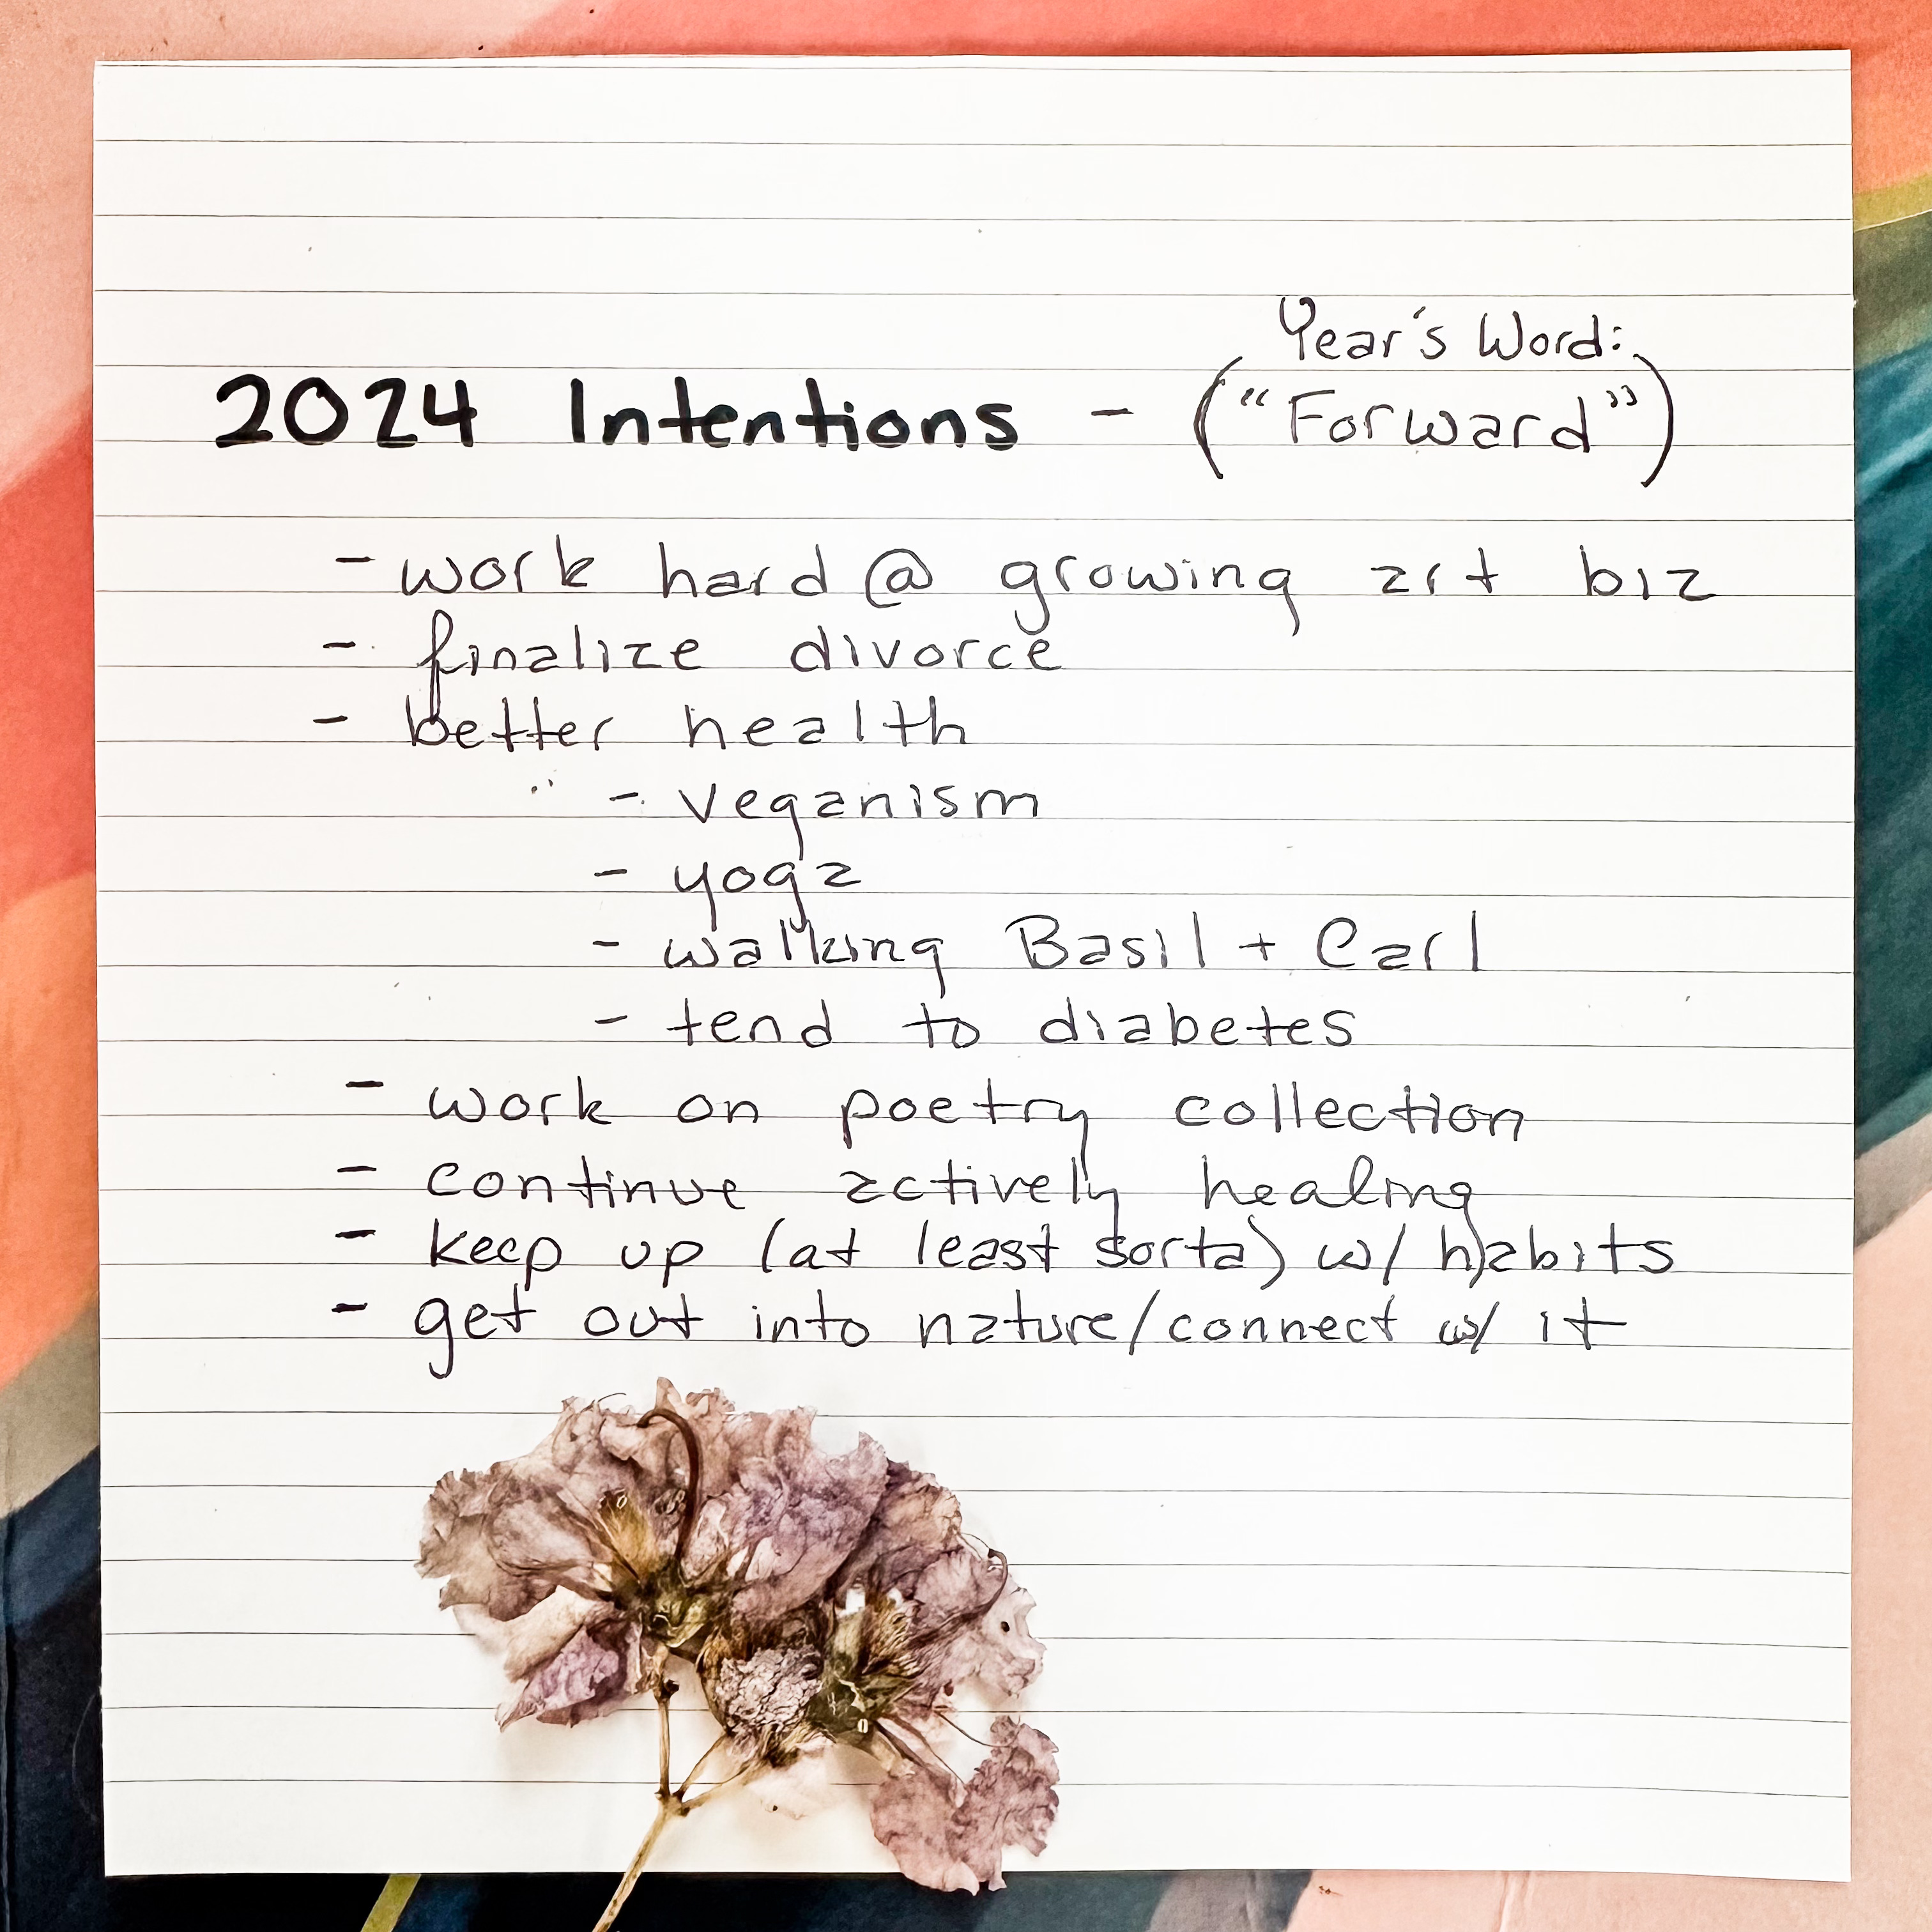 Year's Word:
2024 Intentions - ("Forward")
- work hard @ growing art biz
- finalize divorce
- better health
- veganism
- yoga
- walking Basil + Carl
- tend to diabetes
- work on poetry collection
- continue actively healing
- keep up (at least sorta) w/ habits
- get out into nature/connect w/ it